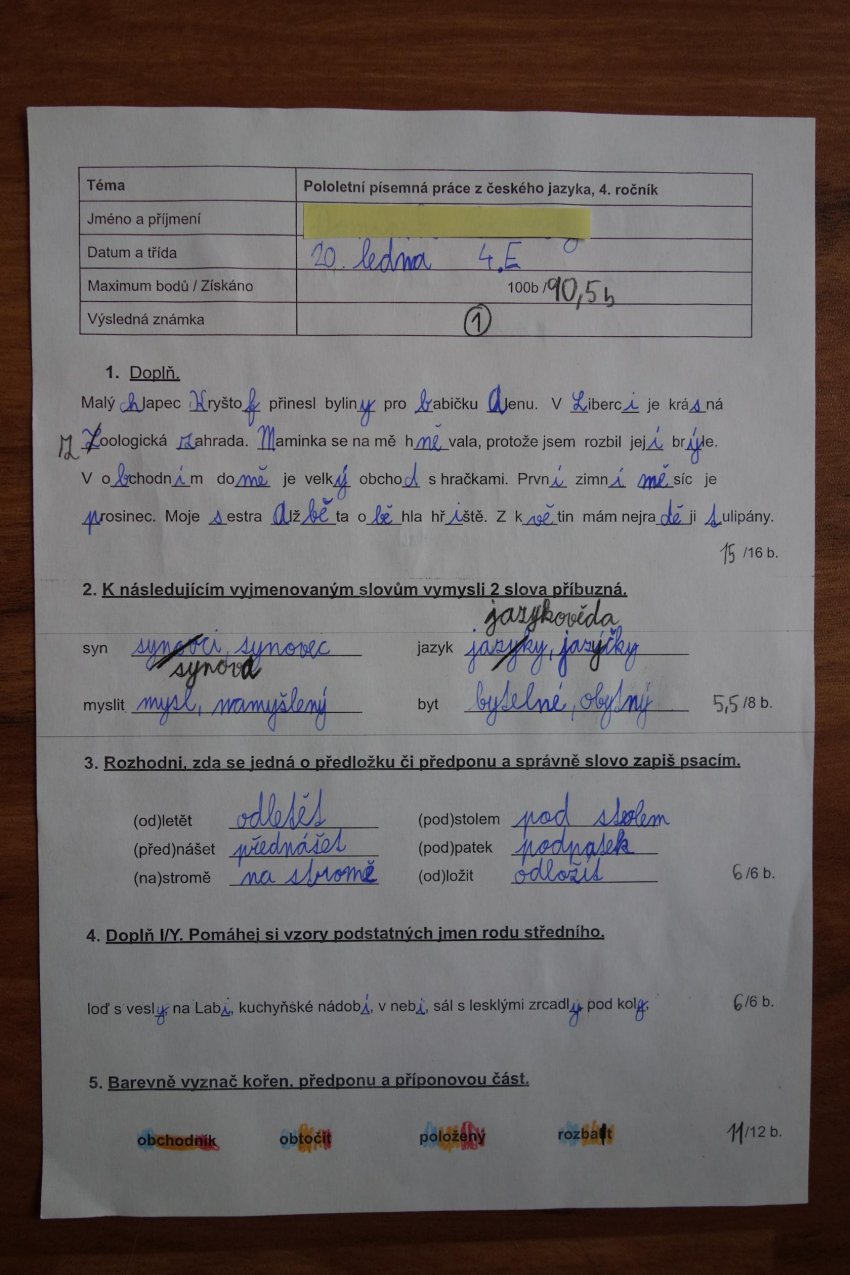 Téma Pololetní písemná práce z českého jazyka, 4. ročník
Jméno a příjmení
Datum a třída 20. ledna 4.E
Maximum bodů / Získáno 100b /90,5b
Výsledná známka 1
1. Doplň.
Malý chlapec Kryštof přinesl byliny pro babičku Alenu. V Liberci je krásná
Z Zoologická zahrada. Maminka se na mě hněvala, protože jsem rozbil jeji brýle.
V obchodnim domě je velký obchod s hračkami. První zimní měsíc je
prosinec. Moje sestra Alžběta oběhla hřiště. Z květin mám nejraději tulipány.
15 /16 b.
2. K následujícím vyjmenovaným slovům vymysli 2 slova příbuzná.
jazykověda
syn synovci, synovec jazyk jazyky, jazýčky
synova
myslit mysl, namyšlený byt bytelné, obytný 5,5 /8 b.
3. Rozhodni, zda se jedná o předložku či předponu a správně slovo zapiš psacím.
(od)letět odletět (pod)stolem pod stolem
(před)nášet přednášet (pod)patek podpatek
(na)stromě na stromě (od)ložit odložit 6/6 b.
4. Doplň I/Y. Pomáhej si vzory podstatných jmen rodu středního.
loď s vesly, na Labi, kuchyňské nádobí, v nebi, sál s lesklými zrcadly, pod koly, 6/6 b.
5. Barevně vyznač kořen, předponu a příponovou část.
obchodník obtočit položený rozbalit 11/12 b.